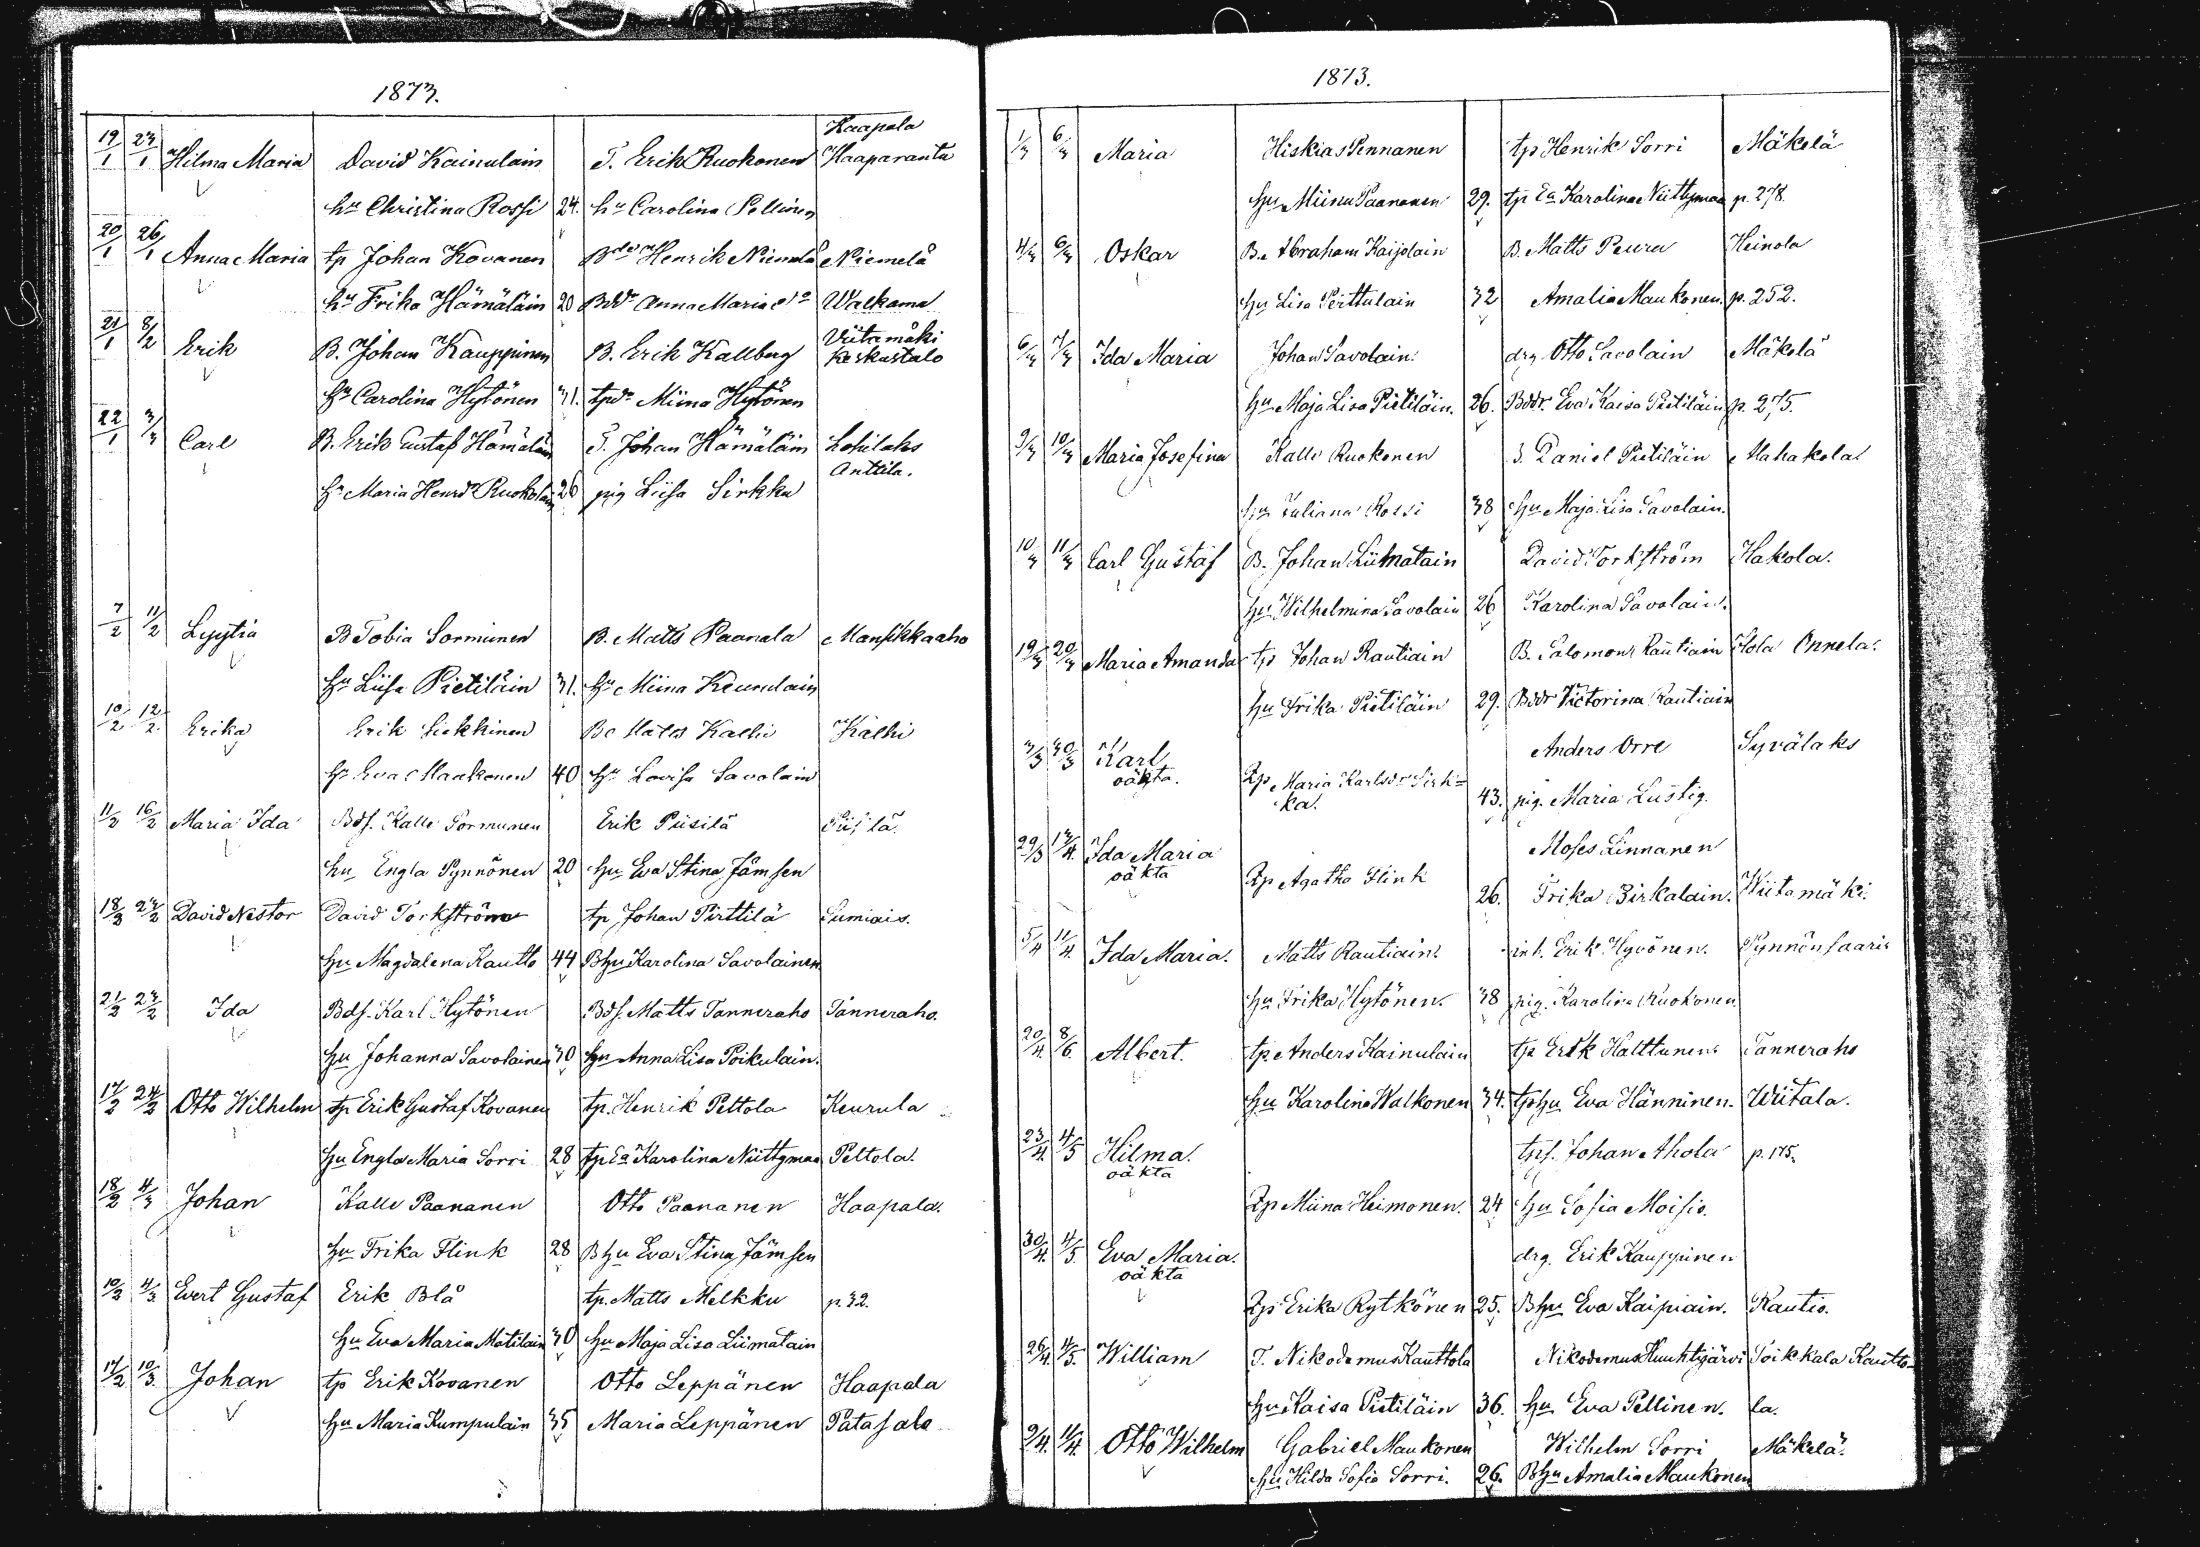 1873.
Haapala
19/1 24/1 Hilma Maria David Kainulain T. Erik Ruokonen Haaparanta
hu Christina Rossi 24. hu Carolina Pellinen
20/1 26/1 Anna Maria tp Johan Kovanen Bde Henrik Niemelä Niemelä
hu Frika Hämäläin 20 Bddr Anna Maria Walkama
21/1 2/2 Erik B. Johan Kauppinen B. Erik Kallberg Viitamäki Keskastalo
hu Carolina Hytönen 31. tpdr Miina Hytönen
22/1 3/3 Carl B. Erik Gustaf Hämäläin T. Johan Hämäläin Lohilaks
hu Maria Henrdr Ruokolain 26 pig Liisa Sirkku Anttila.
7/2 11/2 Lyytia B Tobia Sormunen B. Matts Paanala Mansikkaaho
hu Liisa Pietiläin 31. hu Miina Keurulain
10/2 12/2 Erika Erik Siekkinen Be Mats Kalhi Kälhi
hu Eva Maukonen 40 hu Lovisa Savolain
11/2 16/2 Maria Ida Bds. Kalle Sormunen Erik Piisilä Piisilä.
hu Engla Pynnönen 20 hu Eva Stina Jämsen
18/2 23/2 David Nestor David Torkström tp Johan Pirttilä Sumiais.
hu Magdalena Kautto 44 Bhu Karolina Savolainen
21/2 23/2 Ida Bds. Karl Hytönen Bds. Matts Tanneraho Tanneraho.
hu Johanna Savolainen 30 hu Anna Lisa Poikulain.
17/2 24/2 Otto Wilhelm tp Erik Gustaf Kovanen tp. Henrik Peltola Keurula
hu Engla Maria Sorri 28 tp Ea Karolina Niittymaa Peltola.
18/2 4/3 Johan Kalle Paananen Otto Paananen Haapala.
hu Frika Flink 28 Bhu Eva Stina Jämsen
10/2 4/3 Evert Gustaf Erik Blå tp. Matts Melkku p. 32.
hu Eva Maria Matilain 30 hu Maja Lisa Liimatain
17/2 10/3 Johan tp Erik Kovanen Otto Leppänen Haapala
hu Maria Kumpulain 35 Maria Leppänen Patasalo
1873.
1/3 6/3 Maria Hiskias Pennanen tp Henrik Sorri Mäkelä
hu Miina Paananen 29. tp Ea Karolina Niittymaa p. 278.
4/3 6/3 Oskar B. Abraham Kaijolain B. Matts Peura Heinola
hu Lisa Perttulain 32 Amalia Maukonen. p. 252.
6/3 7/3 Ida Maria Johan Savolain. drg Otto Savolain Mäkelä
hu Maja Lisa Pietiläin. 26. Bddr. Eva Kaisa Pietiläin p. 275.
9/3 10/3 Maria Josefina Kalle Ruokonen I. Daniel Pietiläin Mahakola
hu Juliana Rossi 38 hu Maja Lisa Savolain.
10/3 11/3 Carl Gustaf B. Johan Liimatain David Torkström Hakola.
hu Wilhelmina Savolain 26 Karolina Savolain.
19/3 20/3 Maria Amanda tp Johan Rautiain B. Salomon Rautiain Hola Onnela.
hu Frika Pietiläin 29. Bddr Victorina Rautiain
3/3 30/3 Karl Anders Orre Syvälaks
oäkta. Qp Maria Karlsdr Sirk=
ka. 43. pig. Maria Lustig.
29/3 13/4. Ida Maria Moses Linnanen
oäkta Qp Agatha Flink 26. Frika Birkalain. Wiitamäki.
5/4 11/4. Ida Maria. Matts Rautiain inh. Erik Hyvönen. Pynnönsaari
hu Frika Hytönen. 38 pig. Karolina Ruokonen
20/4. 8/6. Albert. tp. Anders Kainulain tp Erik Halttunen Tanneraho
hu Karolina Walkonen 34. tphu Eva Hänninen. Wiitala.
23/4. 4/5 Hilma. tps. Johan Ahola p. 175.
oäkta
Qp Miina Heimonen. 24 hu Sofia Moisio.
30/4. 4/5. Eva Maria. drg. Erik Kauppinen
oäkta
Qp Erika Rytkönen 25. Bhu Eva Kaipiain. Rautio.
26/4. 4/5. William T. Nikodemus Kauttola Nikodemus Huuhtijärvi Soikkala Kautto-
hu Kaisa Pietiläin 36. hu Eva Pellinen. la.
9/4. 11/4. Otto Wilhelm Gabriel Maukonen Wilhelm Sorri Mäkelä.
hu Hilda Sofia Sorri. 26. Bhu Amalia Maukonen